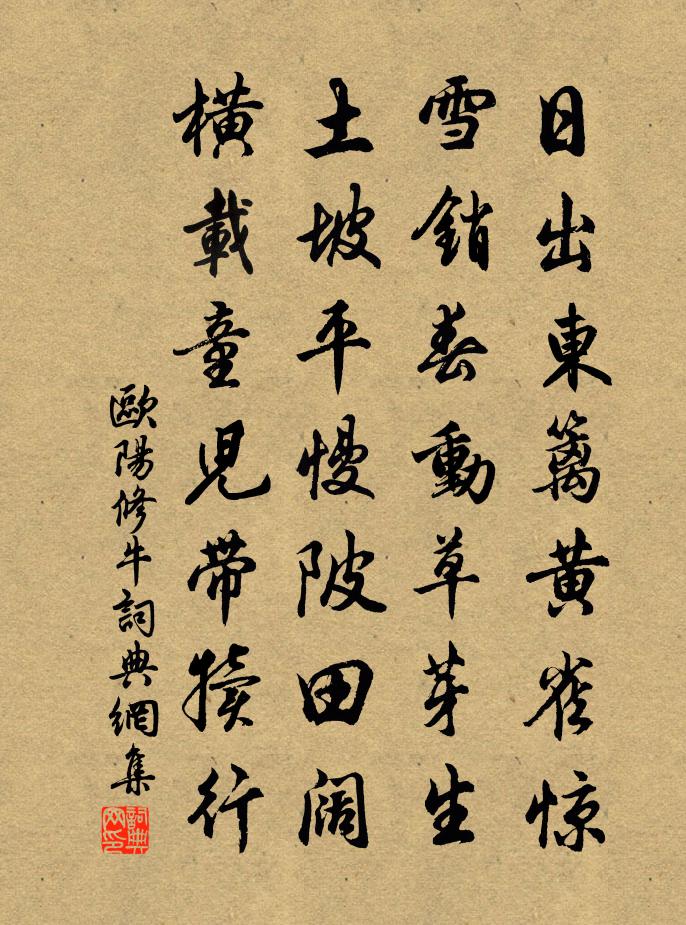 日出東籬黄雀惊
雪銷春動草芽生
土坡平慢陂田阔
横載童兒帶犢行
歐陽修牛詞典網集
詞典网印